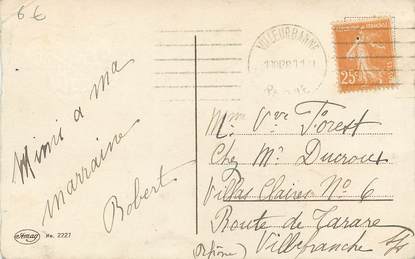 66
Mimi a ma
marraine
Robert
Amag
No. 2227
VILLEURBANNE
25
Mme Vve Forest
Chez Mr Ducroux
Villas Claires No 6
Route de Tarare
Villefranche s/s
(Rhône)